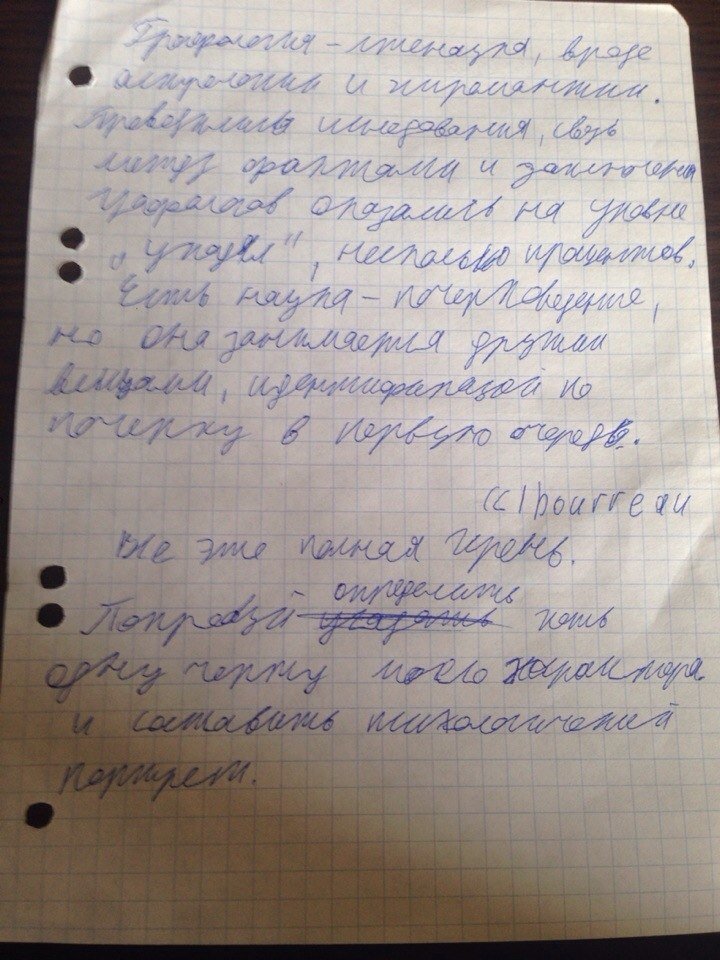 Графология - лженаука, вроде
астрологии и хиромантии.
Проводились исследования, связь
между фактами и заключени
графологов оказались на уровне
"угадал", несколько процентов.
Есть наука - почерковедение,
но она занимается другими
вещами, идентификацией по
почерку в первую очередь.
(c) bourreau
Все это полная хрень.
определить
Попробуй угадать хоть
одну черту моего характера
и составить психологический
портрет.